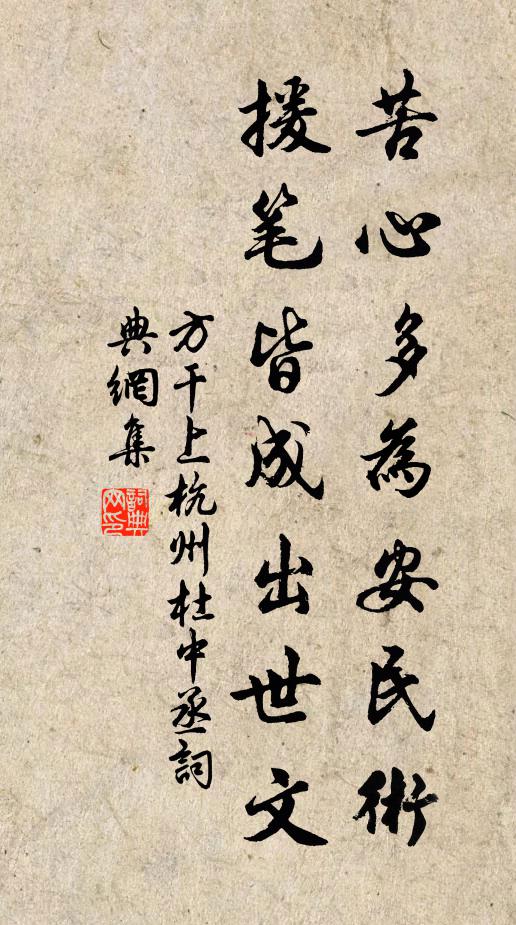 苦心多為安民術
援笔皆成出世文
方干上杭州杜中丞詞
典網集
詞典網印